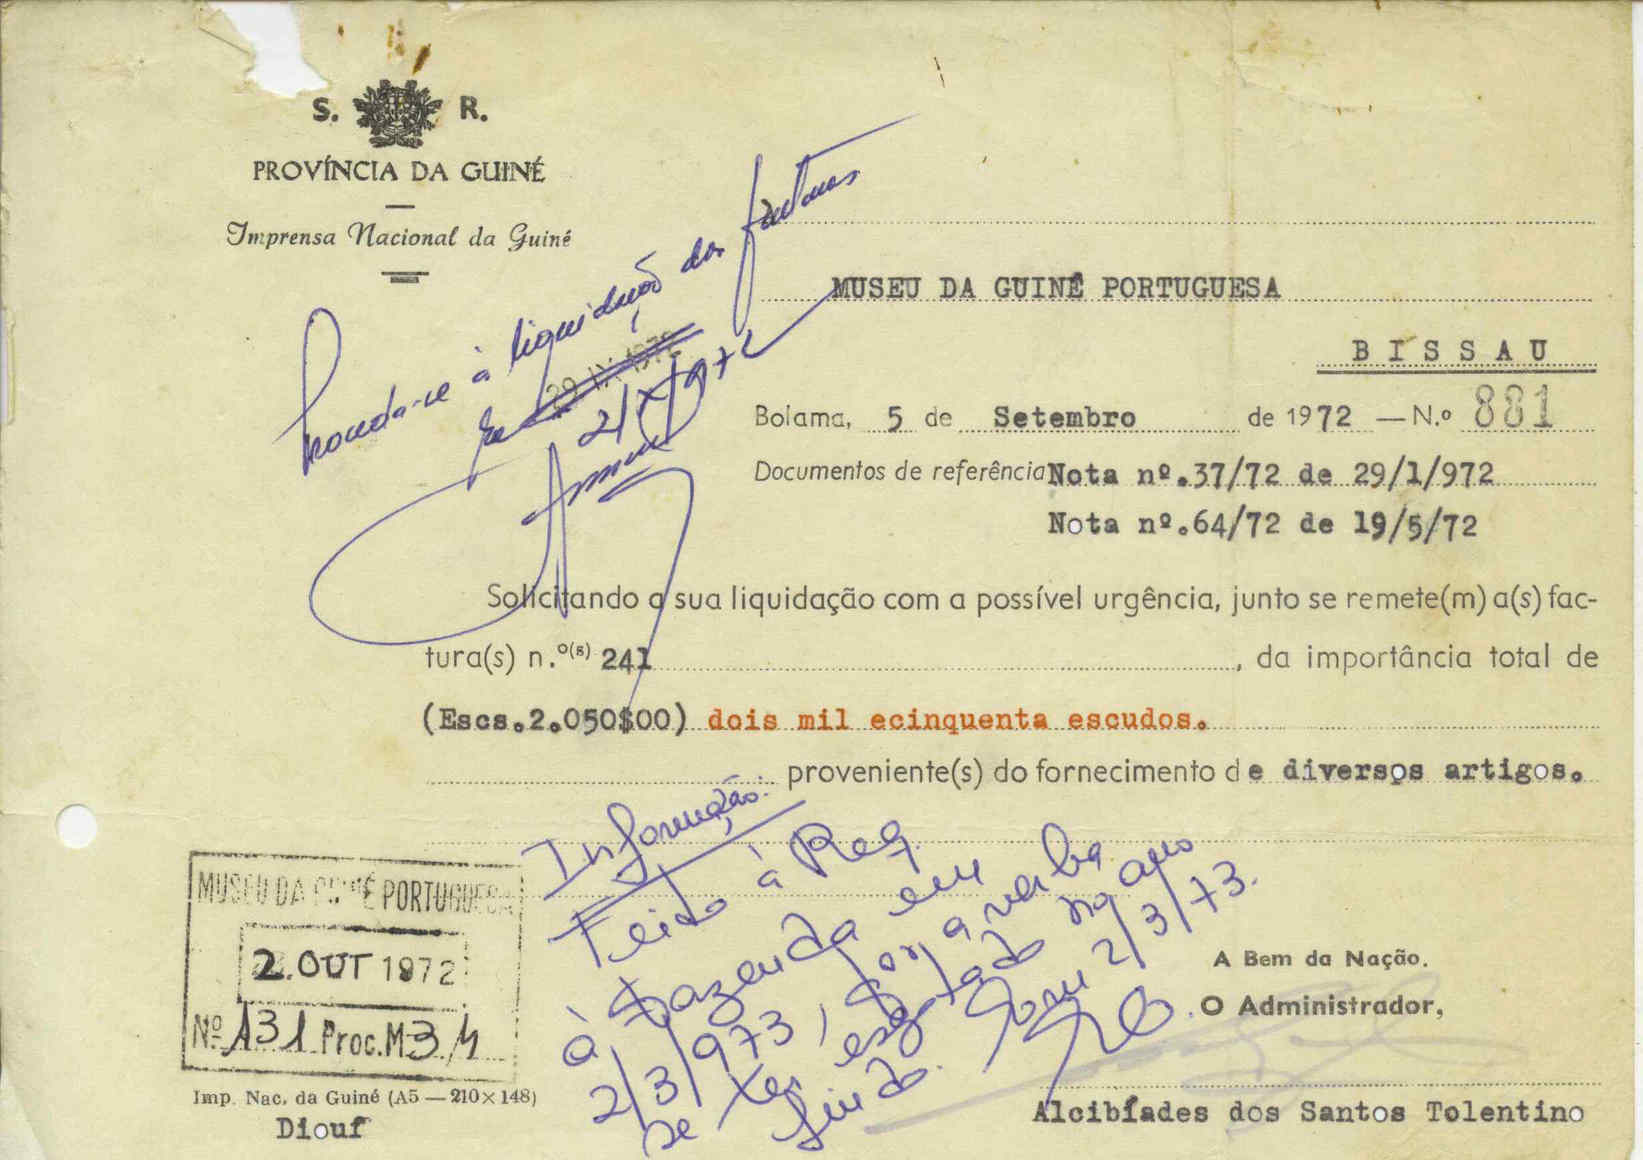 S. R.
PROVÍNCIA DA GUINÉ
Imprensa Nacional da Guiné
à liquidação das facturas
29 IX 1972
2/X/972
MUSEU DA GUINÉ PORTUGUESA
BISSAU
Bolama, 5 de Setembro de 1972 — N.º 881
Documentos de referência Nota nº.37/72 de 29/1/972
Nota nº.64/72 de 19/5/72
Solicitando a sua liquidação com a possível urgência, junto se remete(m) a(s) fac-
tura(s) n.º(s) 241, da importância total de
(Escs.2.050$00) dois mil ecinquenta escudos.
proveniente(s) do fornecimento de diversos artigos.
Informação:
Feito à Req.
à Fazenda em
2/3/973, por a verba
se ter esgotado no ano
findo. 2/3/73.
MUSEU DA GUINÉ PORTUGUESA
2. OUT 1972
Nº 131 Proc. M-3/4
A Bem da Nação.
O Administrador,
Alcibíades dos Santos Tolentino
Imp. Nac. da Guiné (A5 — 210×148)
Diouf